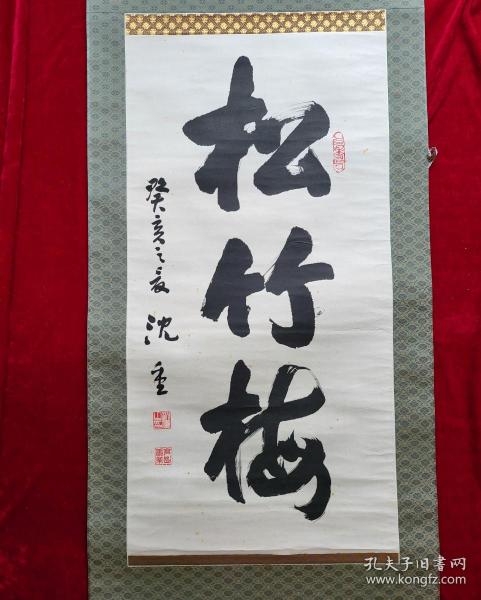 松竹梅
癸亥之夏 沈重
孔夫子旧书网
www.kongfz.com